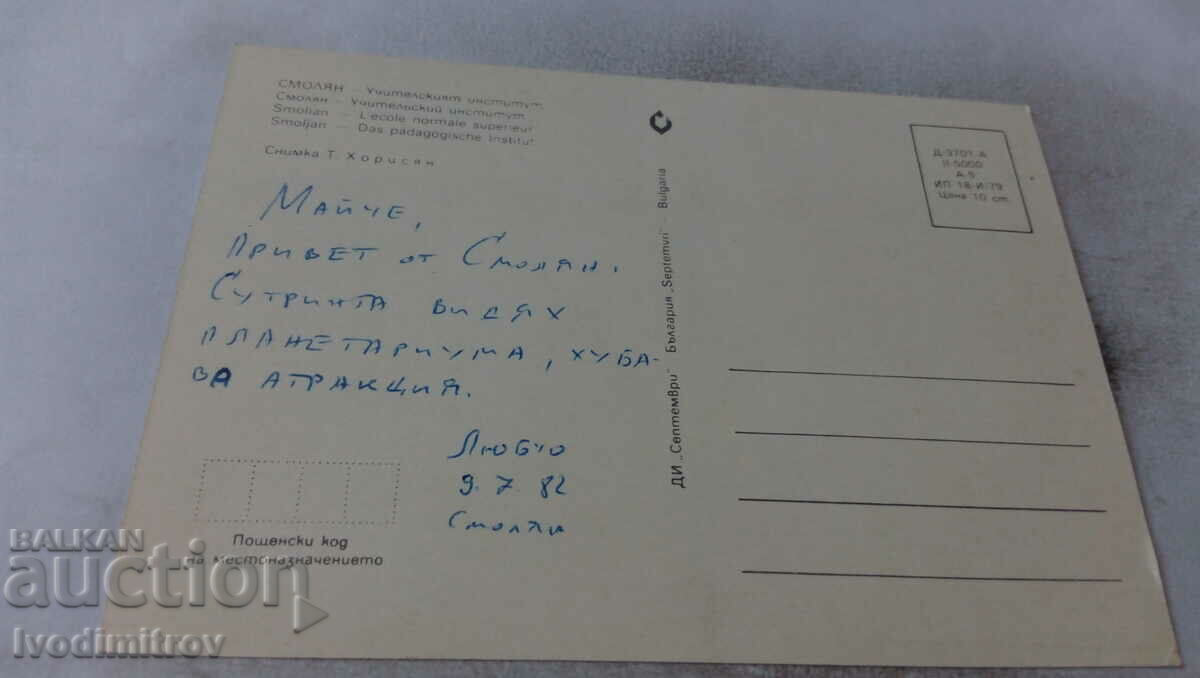 СМОЛЯН – Учителският институт
Смолян – Учительский институт
Smolian – L'ecole normale superieur
Smoljan – Das pädagogische Institut
Снимка Т. Хорисян
Майче,
Привет от Смолян.
Сутринта видях
планетариума, хуба-
ва атракция.
Любчо
9.7.82
Смолян
Пощенски код
на местоназначението
ДИ „Септември" България „Septemvri" - Bulgaria
Д-3701-А
II-5000
А-5
ИП 18-И/79
Цена 10 ст.
BALKAN
auction
Ivodimitrov